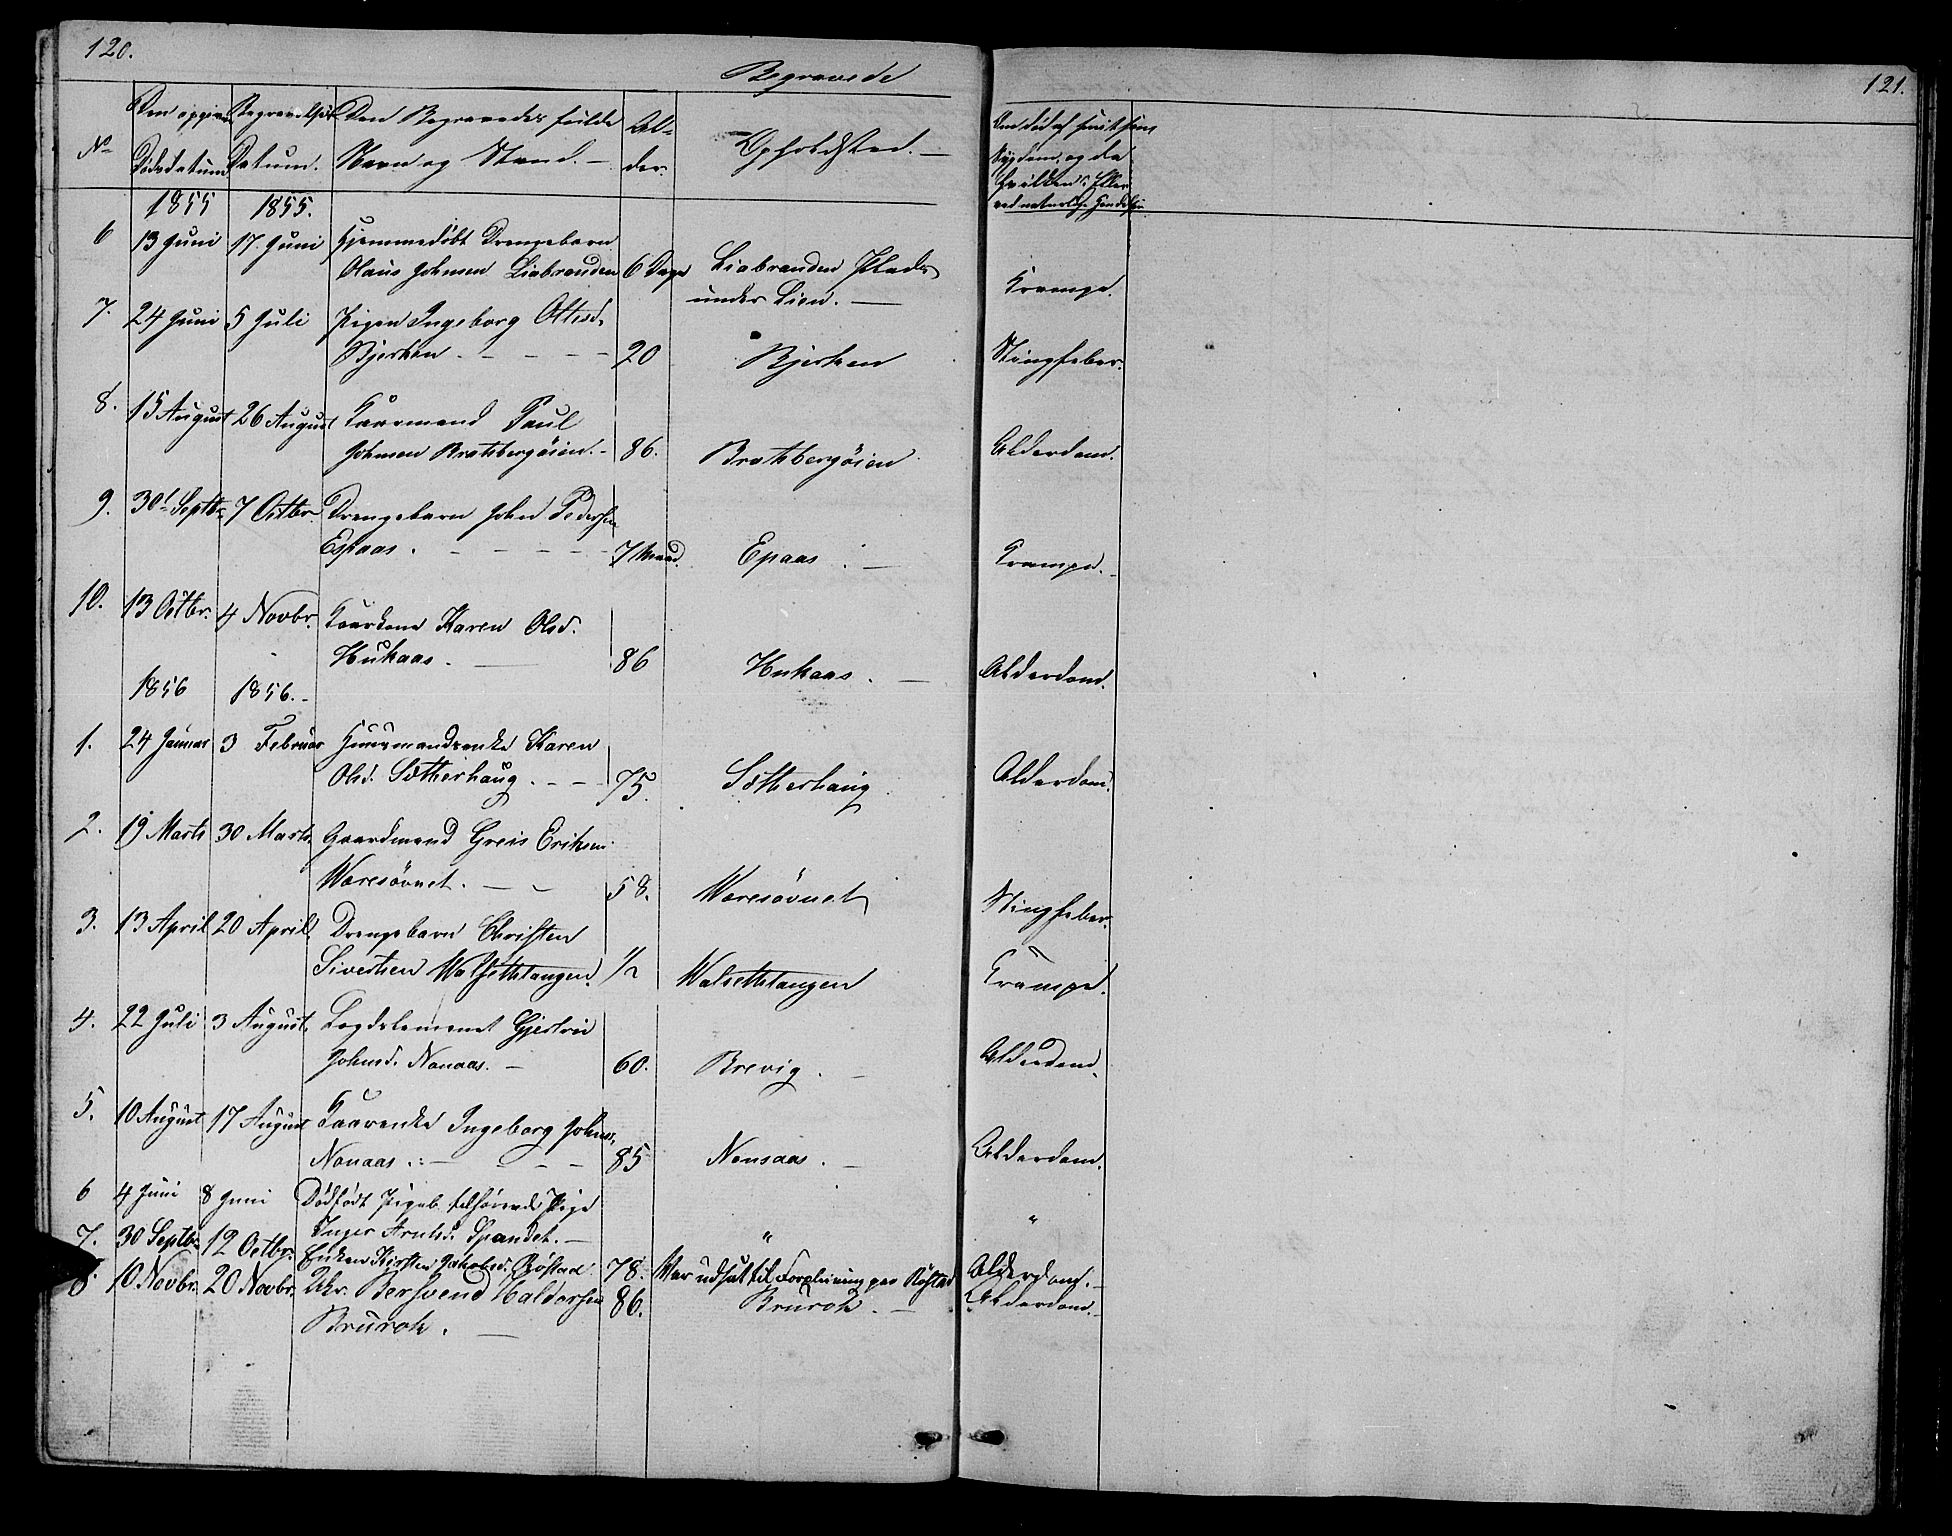 120.
Begravede
121.
No
Den opgivne Dødsdatum
Begravelses Datum.
Den Begravedes fulde Navn og Stand. –
Alder.
Opholdsted. –
Om død af smitsom Sygdom, og da hvilken? Eller ved naturlig Hændelse
1855 1855.
6 13 Juni 17. Juni Hjemmedøbt Drengebarn
Olaus Johnsen Liabranden 6 Dage Liabranden Plads
under Lien. – Krampe.
7. 24 Juni 5 Juli Pigen Ingeborg Ottesd.
Bjerken – – – – 20 Bjerken Stingfeber.
8. 15 August 26 August Kaarmand Paul
Johnsen Bratsbergøien. – 86. Bratsbergøien Alderdom.
9. 30t Septbr. 7 Octbr. Drengebarn John Pedersen
Espaas. – – – – 7 Maad. Epaas. – Krampe. –
10. 13 Octbr. 4 Novbr. Kaarkone Karen Olsd.
Hukaas. – 86 Hukaas. – Alderdom.
1856 1856. –
1. 24 Januar 3 Februar Huusmandsenke Karen
Olsd. Sætherhaug. – – 75. Sætherhaug Alderdom.
2. 19 Marts 30 Marts. Gaardmand Greis Eriksen
Woresøvnet. – – 58. Woresøvnet Stingfeber.
3. 13 April 20 April. Drengebarn Christen
Sivertsen Walsethtangen. 1/2 Walsethtangen Krampe.
4. 22 Juli 3 August. Lægdslemmet Gjertrū
Johnsd. Nonaas. – 60. Brevig. – Alderdom.
5. 10 August 17 August Kaarenke Ingeborg Johnsd.
Nonaas. – – – – 85 Nonsaas. – Alderdom.
6 4 Juni 8 Juni Dødfødt Pigeb. tilhørende Pige
Inger Arntsd. Spandet. – " "
7. 30 Septbr. 12 Octbr. Enken Kirsten Jakobsd. Røstad 78. Var udsat til Forpleining paa Røstad Alderdom. –
8. 10 Novbr. 20 Novbr. Kkr. Bersvend Haldorsen 86. Brurok. – Alderdom. –
Brurok. –